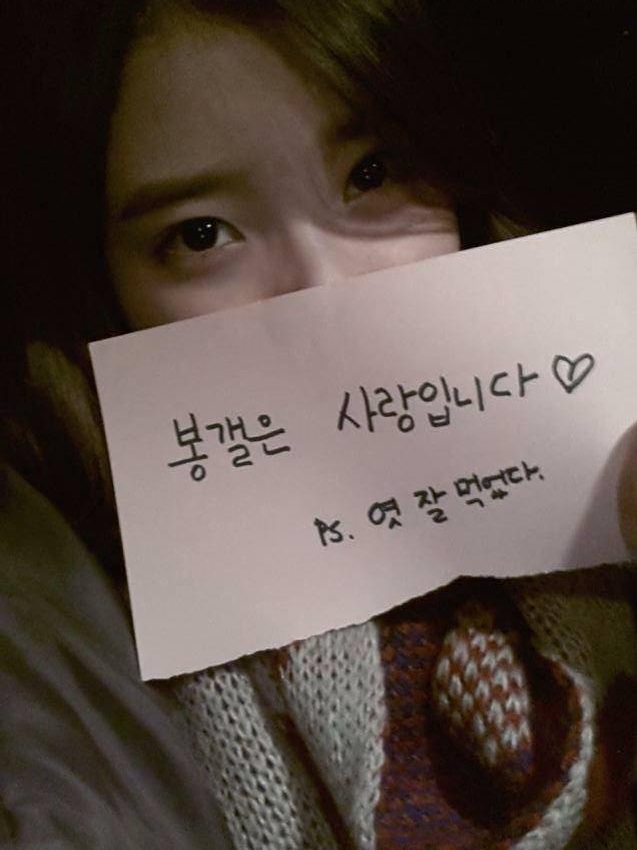 봉갤은 사랑입니다♡
PS. 엿 잘 먹었다.